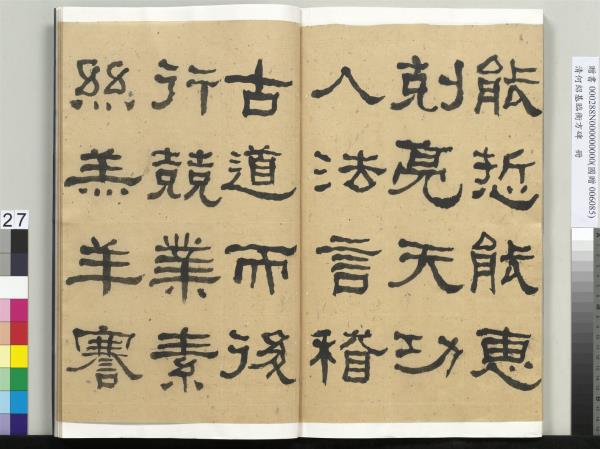 能悊能惠
剋亮天功
人法言稽
古道而後
行兢業素
絲羔羊謇
贈書 000288N000000000(國贈 006085)
清何紹基臨衡方碑 冊
27